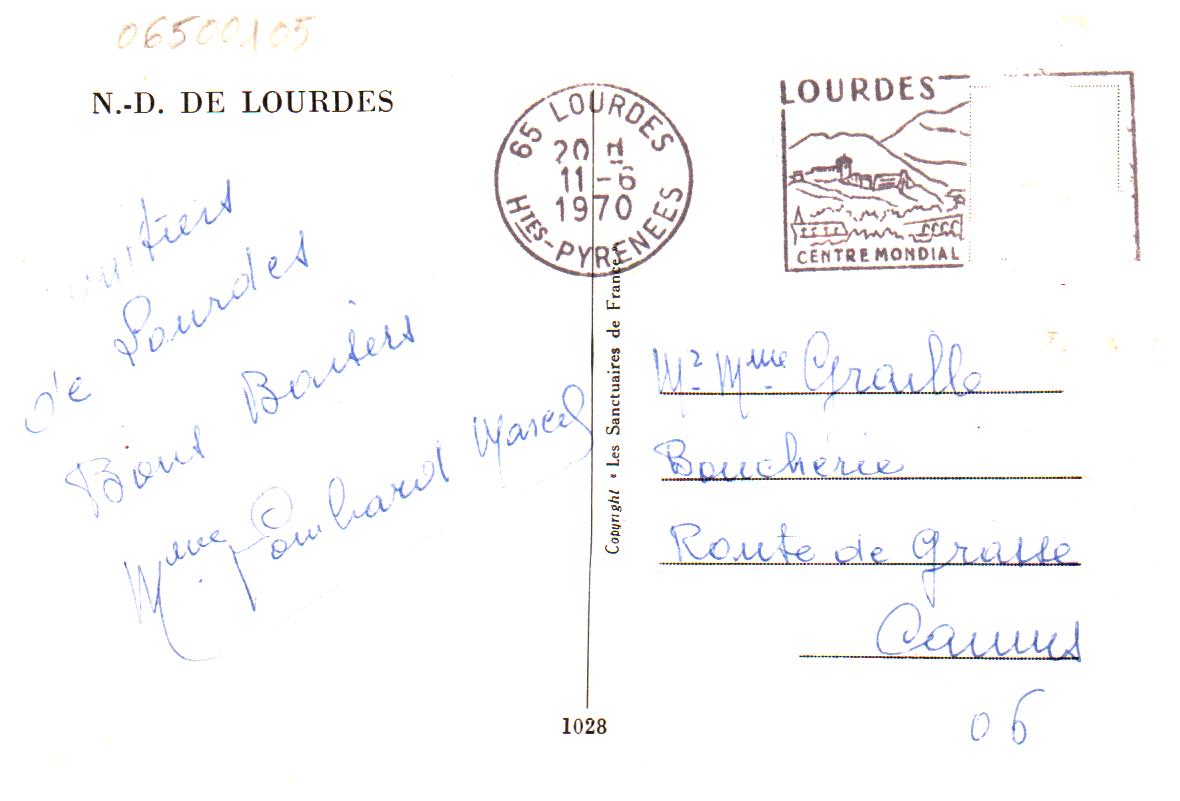 06500105
N.-D. DE LOURDES
65 LOURDES
20 H
11-6
1970
HTES-PYRENEES
LOURDES
CENTRE MONDIAL
de Lourdes
Bons Baisers
Mme Lombard Marcel
Copyright « Les Sanctuaires de France »
Mr Mme Graille
Boucherie
Route de Grasse
Cannes
06
1028